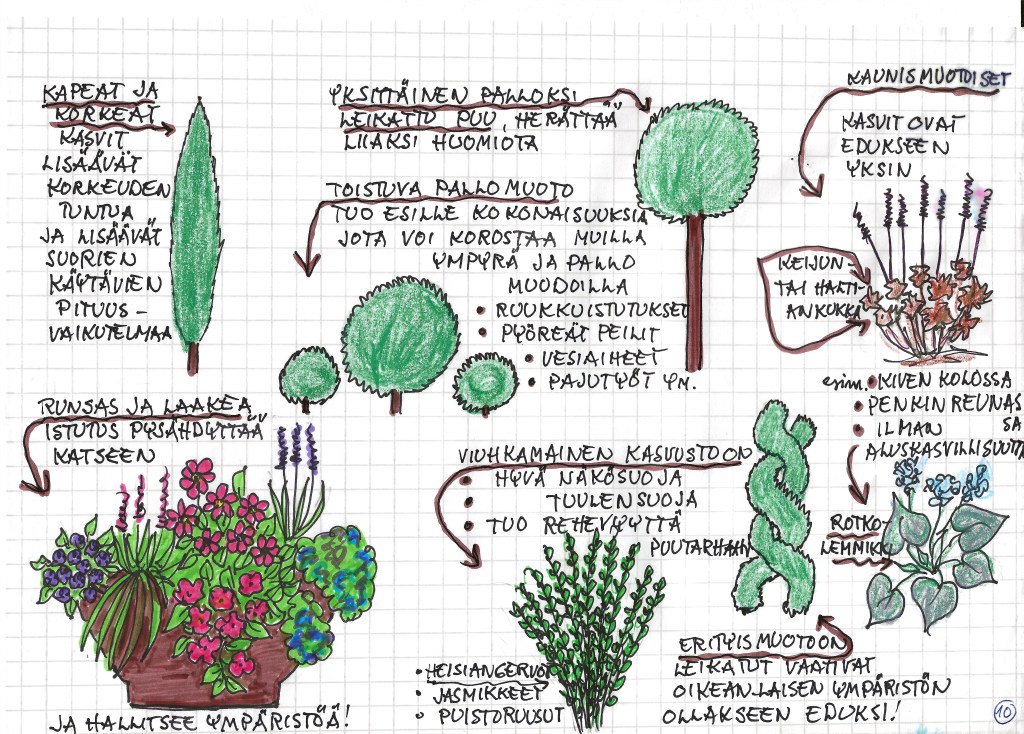 KAPEAT JA
KORKEAT
KASVIT
LISÄÄVÄT
KORKEUDEN
TUNTUA
JA LISÄÄVÄT
SUORIEN
KÄYTÄVIEN
PITUUS-
VAIKUTELMAA
YKSITTÄINEN PALLOKSI
LEIKATTU PUU, HERÄTTÄÄ
LIIAKSI HUOMIOTA
TOISTUVA PALLOMUOTO
TUO ESILLE KOKONAISUUKSIA
JOTA VOI KOROSTAA MUILLA
YMPYRÄ JA PALLO
MUODOILLA
• RUUKKUISTUTUKSET
• PYÖREÄT PEILIT
• VESIAIHEET
• PAJUTYÖT YM.
KAUNISMUOTOISET
KASVIT OVAT
EDUKSEEN
YKSIN
KEIJUN-
TAI HALTI-
ANKUKKA
esim. • KIVEN KOLOSSA
• PENKIN REUNAS
SA
• ILMAN
ALUSKASVILLISUUTTA
ROTKO-
LEMMIKKI
RUNSAS JA LAAKEA
ISTUTUS PYSÄHDYTTÄÄ
KATSEEN
JA HALLITSEE YMPÄRISTÖÄ!
VIUHKAMAINEN KASVUSTO ON
• HYVÄ NÄKÖSUOJA
• TUULENSUOJA
• TUO REHEVYYTTÄ
PUUTARHAAN
• HEISIANGERVOT
• JASMIKKEET
• PUISTORUUSUT
ERITYISMUOTOON
LEIKATUT VAATIVAT
OIKEANLAISEN YMPÄRISTÖN
OLLAKSEEN EDUKSI!
10